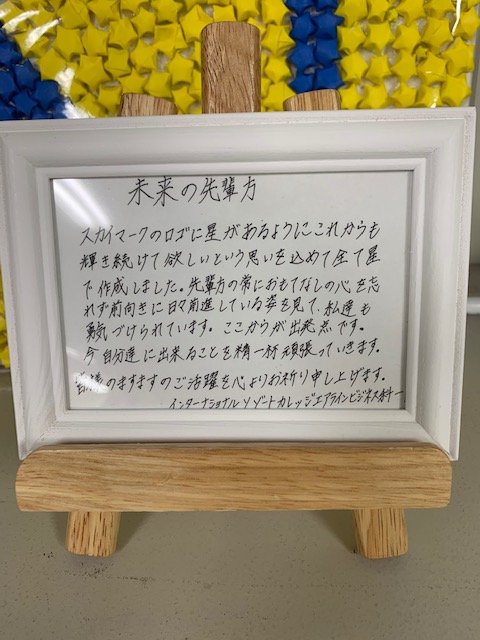 未来の先輩方
スカイマークのロゴに星があるようにこれからも
輝き続けて欲しいという思いを込めて全て星
で作成しました。先輩方の常におもてなしの心を忘
れず前向きに日々前進している姿を見て、私達も
勇気づけられています。ここからが出発点です。
今自分達に出来ることを精一杯頑張っていきます。
皆様のますますのご活躍を心よりお祈り申し上げます。
インターナショナルリゾートカレッジエアラインビジネス科一